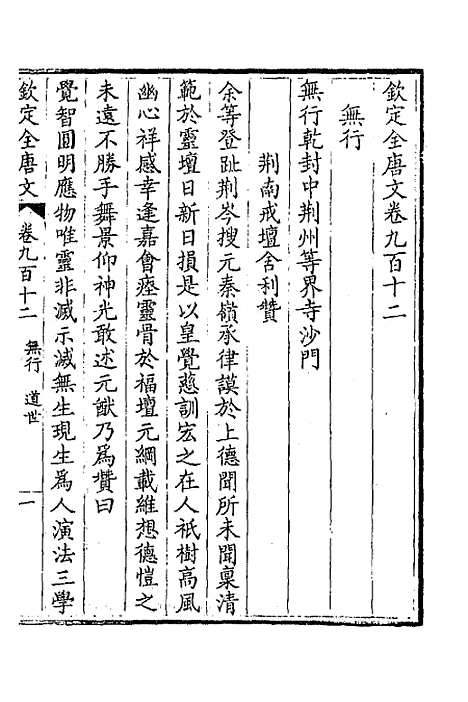 欽定全唐文卷九百十二
無行
無行乾封中荆州等界寺沙門
荆南戒壇舍利贊
余等登趾荆岑搜元秦嶺承律謨於上德聞所未聞稟清
範於靈壇日新日損是以皇覺慈訓宏之在人祇樹高風
幽心祥感幸逢嘉會瘞靈骨於福壇元綱載維想德愷之
未遠不勝手舞景仰神光敢述元猷乃爲贊曰
覺智圓明應物唯靈非滅示滅無生現生爲人演法三學
欽定全唐文 卷九百十二 無行 道世 一